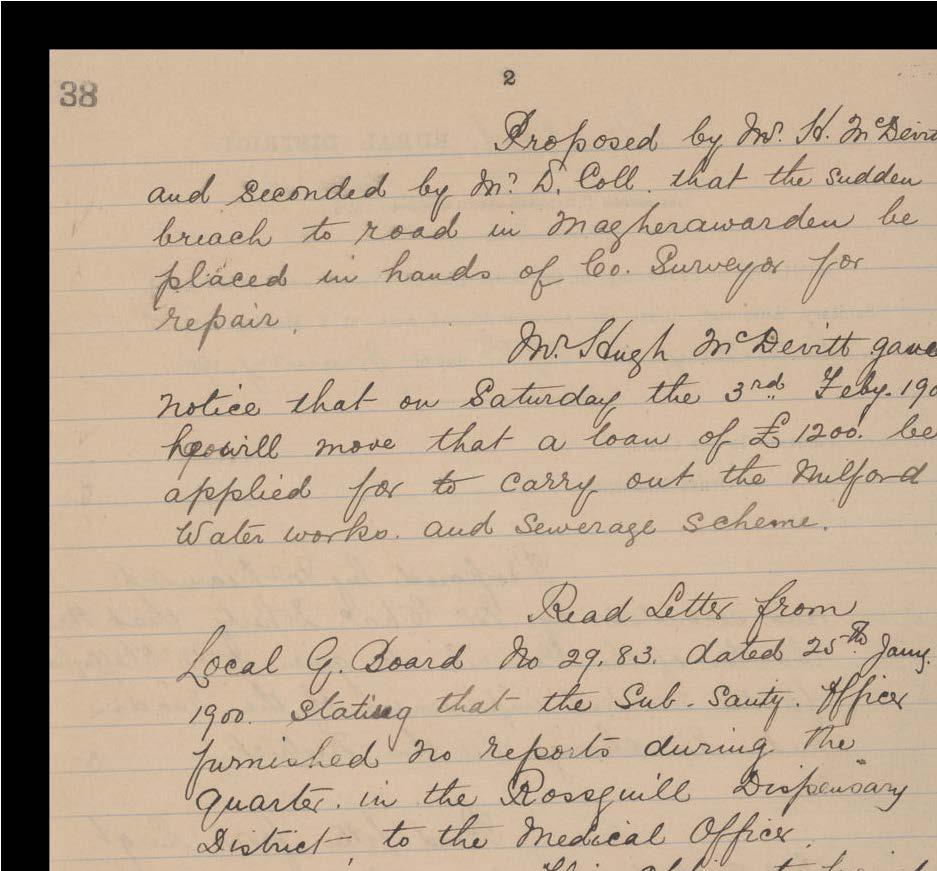 38
2
Proposed by Mr. H. McDevit
and seconded by Mr. D. Coll. that the sudden
breach to road in Magherawarden be
placed in hands of Co. Surveyor for
repair.
Mr. Hugh McDevitt gave
notice that on Saturday the 3rd Feby. 190
he will move that a loan of £1200. be
applied for to carry out the Milford
Water works. and sewerage scheme.
Read Letter from
Local G. Board No 29.83. dated 25th Jany.
1900. stating that the Sub-Santy. Officer
furnished no reports during the
quarter. in the Rossguill Dispensary
District, to the Medical Officer.